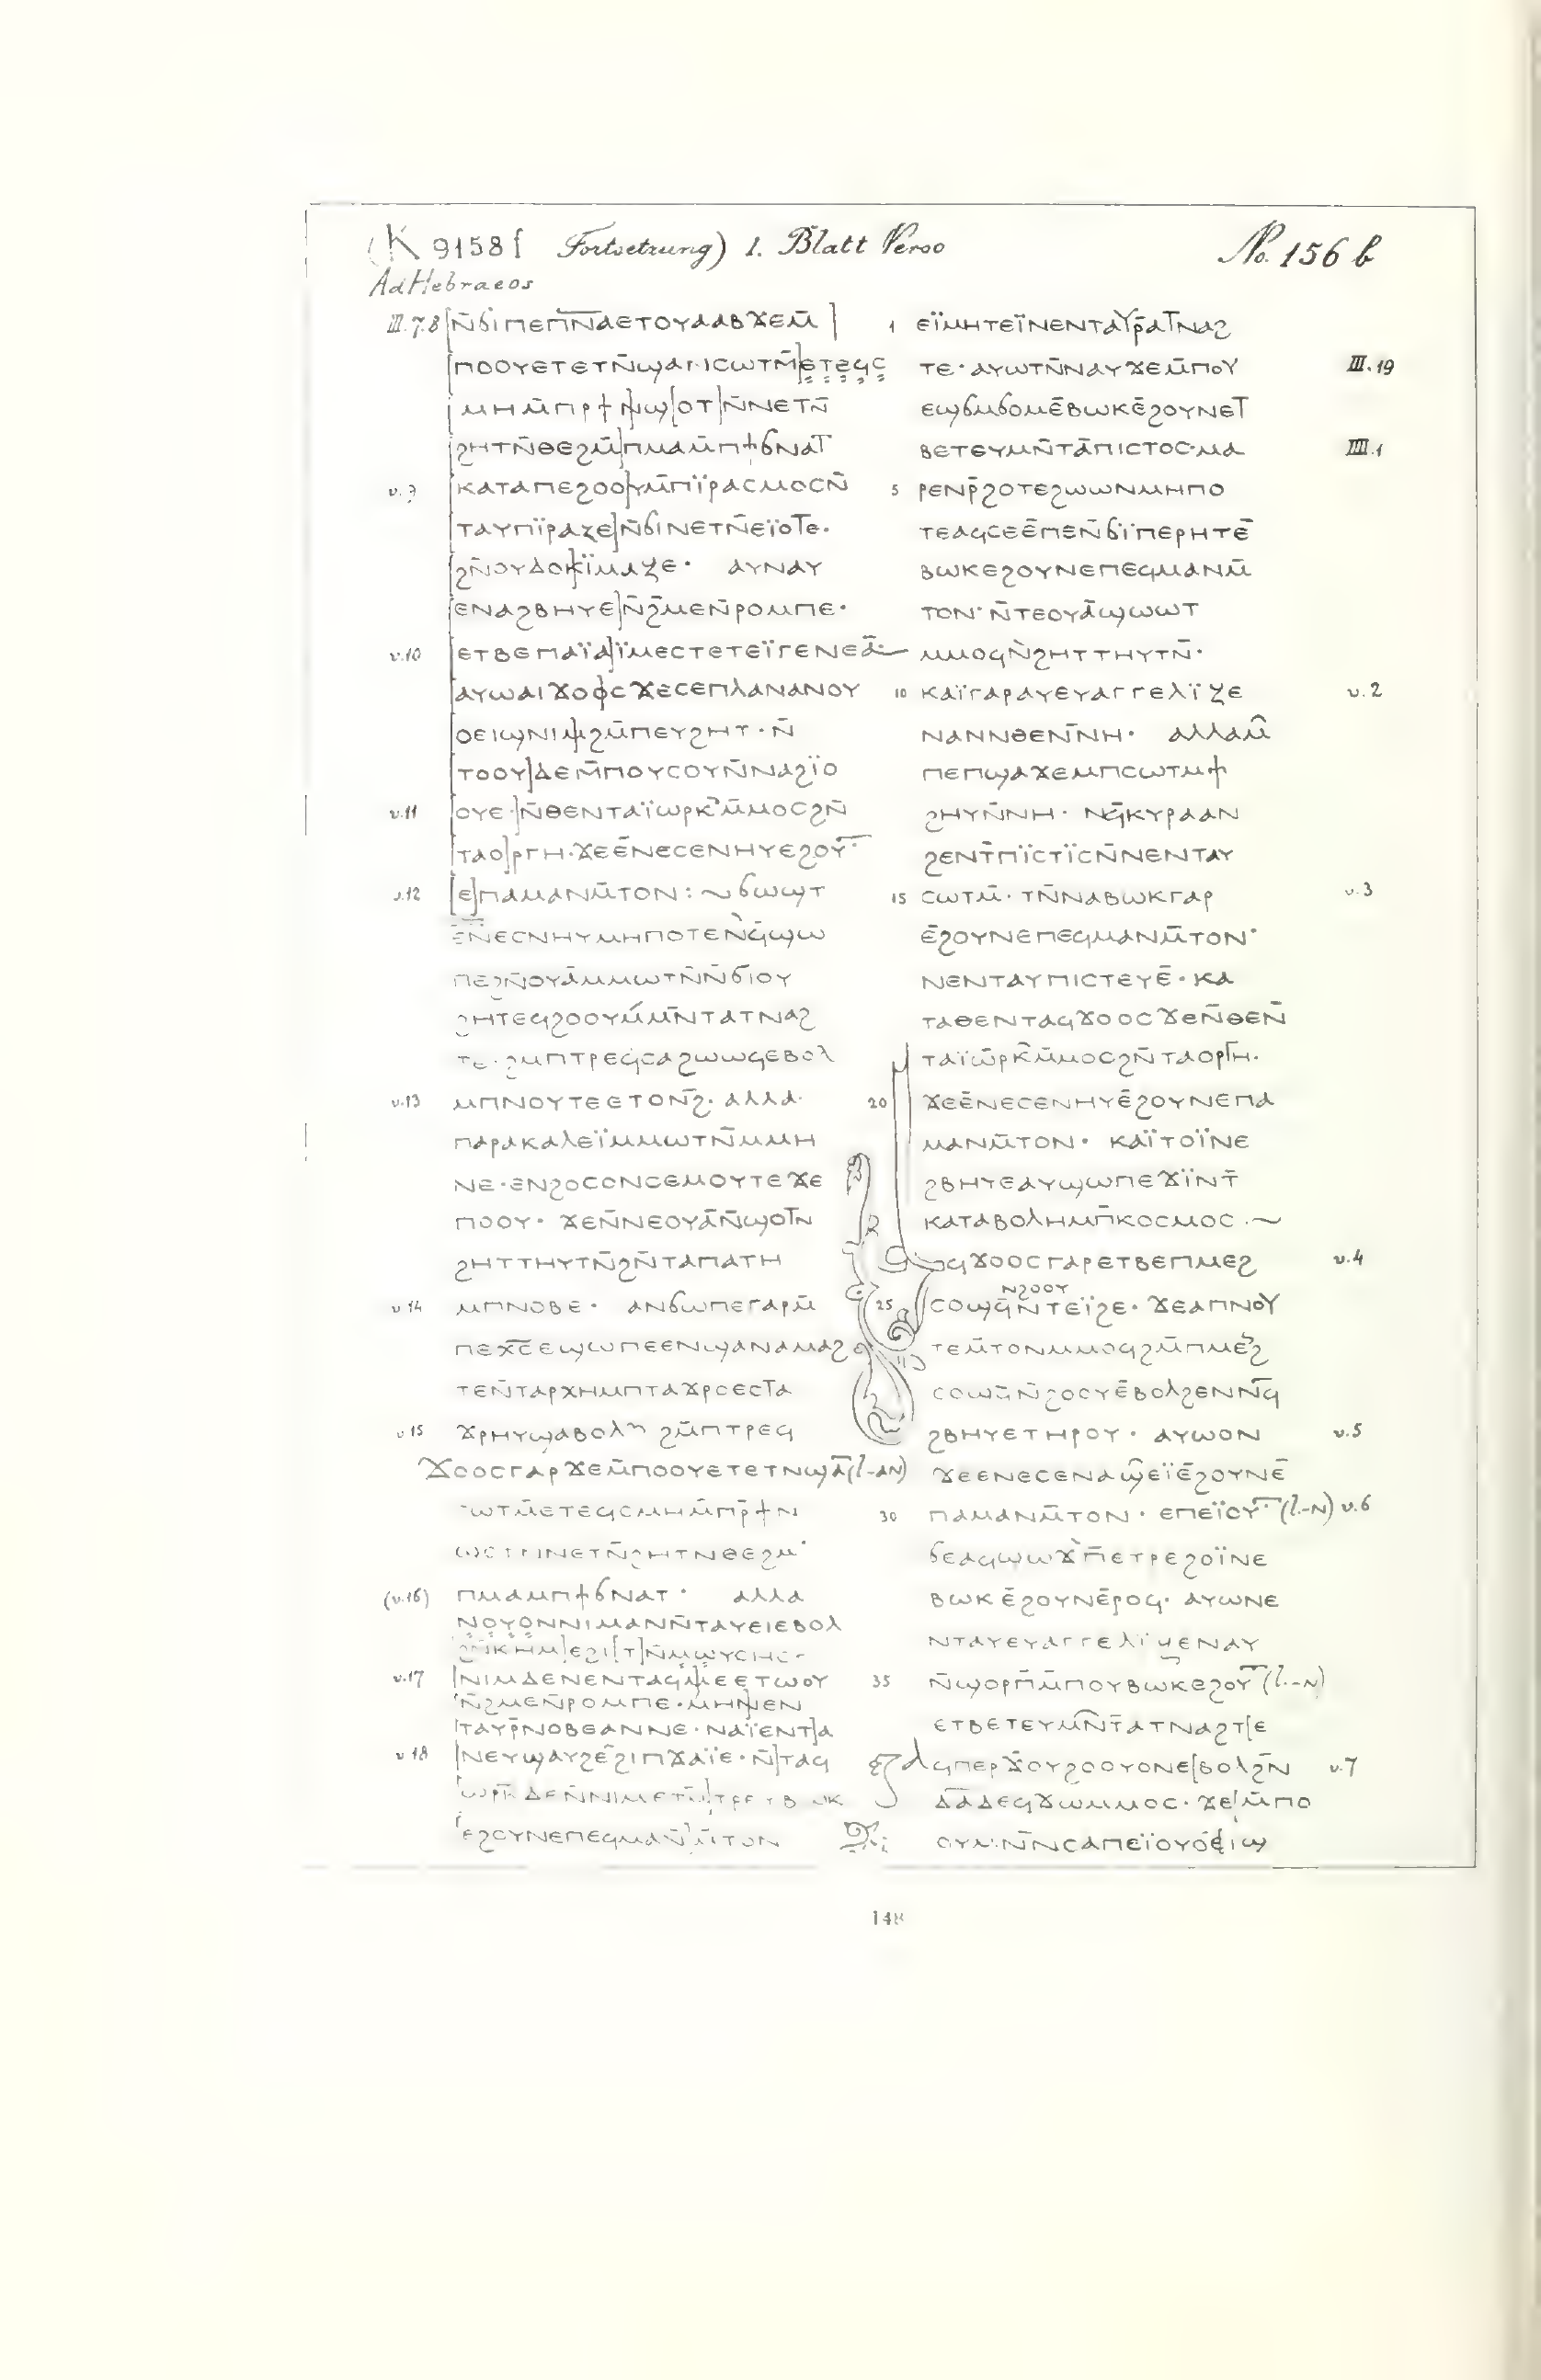 (K 9158 f Fortsetzung) 1. Blatt Verso No. 156 b
Ad Hebraeos
III.7.8 [ⲛ̄ϭⲓⲡⲉⲡ̅ⲛ̅ⲁⲉⲧⲟⲩⲁⲁⲃϫⲉⲙ̄]
[ⲡⲟⲟⲩⲉⲧⲉⲧⲛ̄ϣⲁⲛⲥⲱⲧⲙ̄]ⲉⲧⲉϥⲥ
[ⲙⲏⲙ̄ⲡⲣϯⲛ]ϣ[ⲟⲧ]ⲛ̄ⲛⲉⲧⲛ̄
[ϩⲏⲧⲛ̄ⲑⲉϩⲙ̄]ⲡⲙⲁⲙ̄ⲡϯϭⲛⲁⲧ
v.9 [ⲕⲁⲧⲁⲡⲉϩⲟⲟ]ⲩⲙ̄ⲡⲓ̈ⲣⲁⲥⲙⲟⲥⲛ̄
[ⲧⲁⲩⲡⲓ̈ⲣⲁⲍⲉ]ⲛ̄ϭⲓⲛⲉⲧⲛ̄ⲉⲓ̈ⲟⲧⲉ·
[ϩⲛ̄ⲟⲩⲇⲟⲕ]ⲓ̈ⲙⲁⲍⲉ· ⲁⲩⲛⲁⲩ
[ⲉⲛⲁϩⲃⲏⲩⲉ]ⲛ̄ϩ̄ⲙⲉⲛ̄ⲣⲟⲙⲡⲉ·
v.10 [ⲉⲧⲃⲉⲡⲁⲓ̈ⲁ]ⲓ̈ⲙⲉⲥⲧⲉⲧⲉⲓ̈ⲅⲉⲛⲉⲁ̄·
[ⲁⲩⲱⲁⲓϫⲟⲟ]ⲥϫⲉⲥⲉⲡⲗⲁⲛⲁⲛⲟⲩ
[ⲟⲉⲓϣⲛⲓⲙ]ϩⲙ̄ⲡⲉⲩϩⲏⲧ·ⲛ̄
[ⲧⲟⲟⲩ]ⲇⲉⲙ̄ⲡⲟⲩⲥⲟⲩⲛ̄ⲛⲁϩⲓ̈ⲟ
v.11 [ⲟⲩⲉ·]ⲛ̄ⲑⲉⲛⲧⲁⲓ̈ⲱⲣⲕ̄ⲙ̄ⲙⲟⲥϩⲛ̄
[ⲧⲁⲟ]ⲣⲅⲏ·ϫⲉⲉ̄ⲛⲉⲥⲉⲛⲏⲩⲉϩⲟⲩ̅·
v.12 [ⲉ]ⲡⲁⲙⲁⲛⲙ̄ⲧⲟⲛ:~ϭⲱϣⲧ
ⲉ̄ⲛ̄ⲉⲥⲛⲏⲩⲙⲏⲡⲟⲧⲉⲛ̀ϥ̄ϣⲱ
ⲡⲉϩⲛ̄ⲟⲩⲁ̄ⲙⲙⲱⲧⲛ̄ⲛ̄ϭⲓⲟⲩ
ϩⲏⲧⲉϥϩⲟⲟⲩⲙ̄ⲙⲛ̄ⲧⲁⲧⲛⲁϩ
ⲧⲉ·ϩⲙⲡⲧⲣⲉϥⲥⲁϩⲱⲱϥⲉⲃⲟⲗ
v.13 ⲙⲡⲛⲟⲩⲧⲉⲉⲧⲟⲛϩ̄·ⲁⲗⲗⲁ·
ⲡⲁⲣⲁⲕⲁⲗⲉⲓ̈ⲙⲙⲱⲧⲛ̄ⲙⲙⲏ
ⲛⲉ·ⲉⲛϩⲟⲥⲟⲛⲥⲉⲙⲟⲩⲧⲉϫⲉ
ⲡⲟⲟⲩ· ϫⲉⲛ̄ⲛⲉⲟⲩⲁ̄ⲛ̄ϣⲟⲧ̅ⲛ
ϩⲏⲧⲧⲏⲩⲧⲛ̄ϩⲛ̄ⲧⲁⲡⲁⲧⲏ
v.14 ⲙⲡⲛⲟⲃⲉ· ⲁⲛϭⲱⲡⲉⲅⲁⲣⲙ̄
ⲡⲉⲭ̅ⲥ̅ⲉϣⲱⲡⲉⲉⲛϣⲁⲛⲁⲙⲁϩ
ⲧⲉⲛ̄ⲧⲁⲣⲭⲏⲙⲡⲧⲁϫⲣⲟⲉⲥⲧⲁ
v.15 ϫⲣⲏⲩϣⲁⲃⲟⲗⲏ ϩⲙ̄ⲡⲧⲣⲉϥ
ϫⲟⲟⲥⲅⲁⲣϫⲉⲙ̄ⲡⲟⲟⲩⲉⲧⲉⲧⲛϣⲁ̅(l-ⲁⲛ)
ⲥⲱⲧⲙ̄ⲉⲧⲉϥⲥⲙⲏⲙ̄ⲡⲣ̄ϯⲛ
ϣⲟⲧⲛⲛⲉⲧⲛ̄ϩⲏⲧⲛⲑⲉϩⲙ
(v.16) ⲡⲙⲁⲙⲡϯϭⲛⲁⲧ· ⲁⲗⲗⲁ
ⲛⲟⲩⲟⲛⲛⲓⲙⲁⲛⲛ̄ⲧⲁⲩⲉⲓⲉⲃⲟⲗ
ϩⲛ̄ⲕⲏⲙ]ⲉϩⲓ[ⲧ]ⲛ̄ⲙⲱⲩⲥⲏⲥ·
v.17 [ⲛⲓⲙⲇⲉⲛⲉⲛⲧⲁϥⲙ]ⲉⲥⲧⲱⲟⲩ
[ⲛ̄ϩⲙⲉⲛ̄ⲣⲟⲙⲡⲉ·ⲙⲏⲛ]ⲉⲛ
[ⲧⲁⲩⲣ̄ⲛⲟⲃⲉⲁⲛⲛⲉ·ⲛⲁⲓ̈ⲉⲛⲧ]ⲁ
v.18 [ⲛⲉⲩϣⲁⲩϩⲉ̄ϩⲓⲡϫⲁⲓ̈ⲉ·ⲛ̄]ⲧⲁϥ
[ⲱⲣⲕ̄ⲇⲉⲛ̄ⲛⲓⲙⲉⲧⲙ̄]ⲧⲣⲉⲩⲃⲱⲕ
[ⲉϩⲟⲩⲛⲉⲡⲉϥⲙⲁⲛ̄]ⲙ̄ⲧⲟⲛ
1 ⲉⲓ̈ⲙⲏⲧⲉⲓ̈ⲛⲉⲛⲧⲁⲩⲣ̄ⲁⲧⲛⲁϩ
ⲧⲉ·ⲁⲩⲱⲧⲛ̄ⲛⲁⲩϫⲉⲙ̄ⲡⲟⲩ III.19
ⲉϣϭⲙϭⲟⲙⲉ̄ⲃⲱⲕⲉ̄ϩⲟⲩⲛⲉⲧ
ⲃⲉⲧⲉⲩⲙⲛ̄ⲧⲁ̄ⲡⲓⲥⲧⲟⲥ·ⲙⲁ IIII.1
5 ⲣⲉⲛⲣ̄ϩⲟⲧⲉϩⲱⲱⲛⲙⲏⲡⲟ
ⲧⲉⲁϥⲥⲉⲉ̄ⲡⲉⲛ̄ϭⲓ̈ⲡⲉⲣⲏⲧⲉ̄
ⲃⲱⲕⲉϩⲟⲩⲛⲉⲡⲉϥⲙⲁⲛⲙ̄
ⲧⲟⲛ·ⲛ̄ⲧⲉⲟⲩⲁ̄ϣⲱⲱⲧ
ⲙⲙⲟϥⲛ̀ϩⲏⲧⲧⲏⲩⲧⲛ̄·
10 ⲕⲁⲓ̈ⲅⲁⲣⲁⲩⲉⲩⲁⲅⲅⲉⲗⲓ̈ⲍⲉ v.2
ⲛⲁⲛⲛⲑⲉⲛ̄ⲛⲏ· ⲁⲗⲗⲁⲙ̑
ⲡⲉⲡϣⲁϫⲉⲙⲡⲥⲱⲧⲙϯ
ϩⲏⲩⲛ̄ⲛⲏ· ⲛϥ̄ⲕⲩⲣⲁⲁⲛ
ϩⲉⲛⲧ̄ⲡⲓ̈ⲥⲧⲓ̈ⲥⲛ̄ⲛⲉⲛⲧⲁⲩ
15 ⲥⲱⲧⲙ̄·ⲧⲛ̄ⲛⲁⲃⲱⲕⲅⲁⲣ v.3
ⲉ̄ϩⲟⲩⲛⲉⲡⲉϥⲙⲁⲛⲙ̄ⲧⲟⲛ·
ⲛⲉⲛⲧⲁⲩⲡⲓⲥⲧⲉⲩⲉ̄·ⲕⲁ
ⲧⲁⲑⲉⲛⲧⲁϥϫⲟⲟⲥϫⲉⲛ̄ⲑⲉⲛ̄
ⲧⲁⲓ̈ⲱ̄ⲣⲕ̄ⲙ̄ⲙⲟⲥϩⲛ̄ⲧⲁⲟⲣⲅⲏ·
20 ϫⲉⲉ̄ⲛⲉⲥⲉⲛⲏⲩⲉ̄ϩⲟⲩⲛⲉⲡⲁ
ⲙⲁⲛⲙ̄ⲧⲟⲛ· ⲕⲁⲓ̈ⲧⲟⲓ̈ⲛⲉ
ϩⲃⲏⲩⲉⲁⲩϣⲱⲡⲉϫⲓ̈ⲛⲧ̄
ⲕⲁⲧⲁⲃⲟⲗⲏⲙⲡ̄ⲕⲟⲥⲙⲟⲥ·~
ⲁϥϫⲟⲟⲥⲅⲁⲣⲉⲧⲃⲉⲡⲙⲉϩ v.4
ⲛϩⲟⲟⲩ
25 ⲥⲟϣϥ̄ⲛⲧⲉⲓ̈ϩⲉ·ϫⲉⲁⲡⲛⲟⲩ
ⲧⲉⲙ̄ⲧⲟⲛⲙⲙⲟϥϩⲙ̄ⲡⲙⲉϩ
ⲥⲟϣϥ̄ⲛ̄ϩⲟⲟⲩⲉ̄ⲃⲟⲗϩⲉⲛⲛⲉϥ
ϩⲃⲏⲩⲉⲧⲏⲣⲟⲩ· ⲁⲩⲱⲟⲛ v.5
ϫⲉⲉⲛⲉⲥⲉⲛⲁϣ̑ⲉⲓ̈ⲉ̄ϩⲟⲩⲛⲉ̄
30 ⲡⲁⲙⲁⲛⲙ̄ⲧⲟⲛ· ⲉⲡⲉⲓ̈ⲟⲩ̅·(l.-ⲛ) v.6
ϭⲉⲁϥϣⲱϫ̀ⲡ̄ⲉⲧⲣⲉϩⲟⲓ̈ⲛⲉ
ⲃⲱⲕⲉ̄ϩⲟⲩⲛⲉ̄ⲣⲟϥ·ⲁⲩⲱⲛⲉ
ⲛⲧⲁⲩⲉⲩⲁⲅⲅⲉⲗⲓ̈ⲍⲉⲛⲁⲩ
35 ⲛ̄ϣⲟⲣⲡ̄ⲙ̄ⲡⲟⲩⲃⲱⲕⲉϩⲟⲩ̅(l.-ⲛ)
ⲉⲧⲃⲉⲧⲉⲩⲙⲛ̄ⲧ̄ⲁⲧⲛⲁϩⲧ[ⲉ
ⲁϥⲡⲉⲣϫ̄ⲟⲩϩⲟⲟⲩⲟⲛⲉ[ⲃⲟⲗϩⲛ̄ v.7
ⲇ̅ⲁ̅ⲇⲉϥϫⲱⲙⲙⲟⲥ·ϫⲉ[ⲙ̄ⲡⲟ
ⲟⲩ·ⲙⲛ̄ⲛ̄ⲥⲁⲡⲉⲓ̈ⲟⲩⲟⲉⲓϣ
148